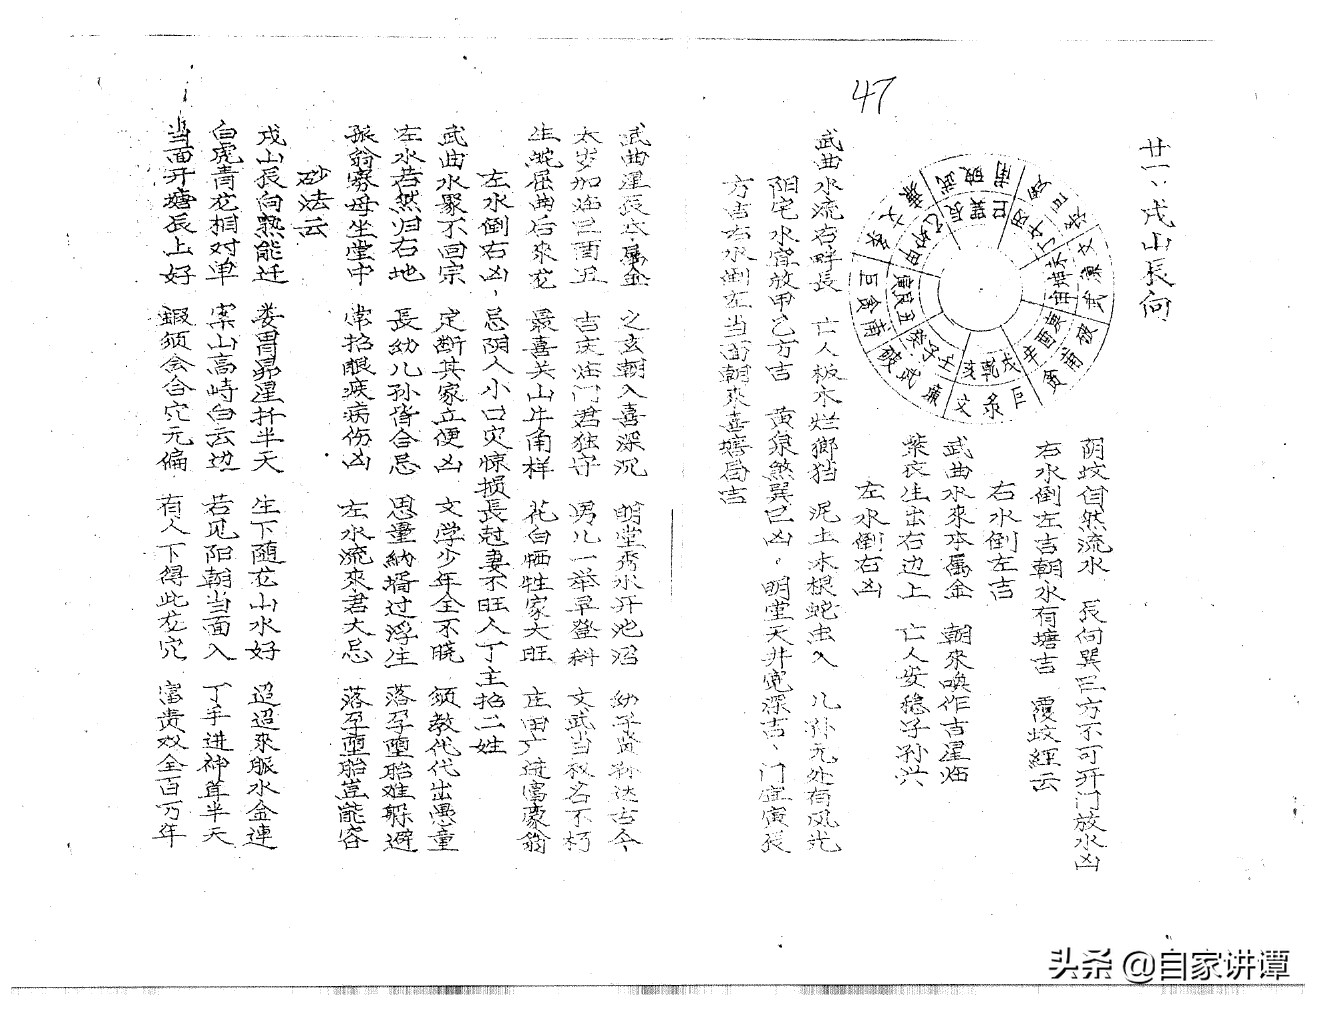 47
廿一、戌山辰向
阴坟自然流水 辰向巽巳方不可开门放水凶
右水倒左吉朝水有塘吉 覆坟経云
右水倒左吉
武曲水來本属金 朝來唤作吉星临
紫衣生出右边上 亡人安穏子孙兴
左水倒右凶
武曲水流右畔長 亡人板木烂郷挡 泥土木根蛇虫入 儿孙无处有风光
阳宅水宜放甲乙方吉 黄泉煞巽巳凶，明堂天井宽深吉、门宜寅辰
方吉右水倒左当面朝來喜塘局吉
武曲星辰本属金 之玄朝入喜深沉 明堂秀水开池沼 幼子贤孙达古今
太岁加临巳酉丑 吉庆临门君独守 男儿一举早登科 文武当权名不朽
生蛇屈曲后來龙 最喜关山牛角样 花白牺牲家大旺 庄田广进富豪翁
左水倒右凶，忌阴人小口灾惊损長尅妻不旺人丁主招二姓
武曲水聚不回宗 定断其家立便凶 文学少年全不晓 须教代代出愚童
左水若然归右地 長幼儿孙皆合忌 思量納壻过浮生 落孕堕胎难躲避
孤翁寡母坐堂中 常招眼疾病伤凶 左水流來君大忌 落孕堕胎豈能容
砂法云
戌山辰向熟能迁 娄胃昴星扦半天 生下随龙山水好 迢迢來脈水金連
白虎青龙相对单 案山高峙白云边 若见阳朝当面入 丁手进神耸半天
当面开塘辰上好 鍜须会合穴无偏 有人下得此龙穴 富贵双全百万年
头条 @自家讲谭